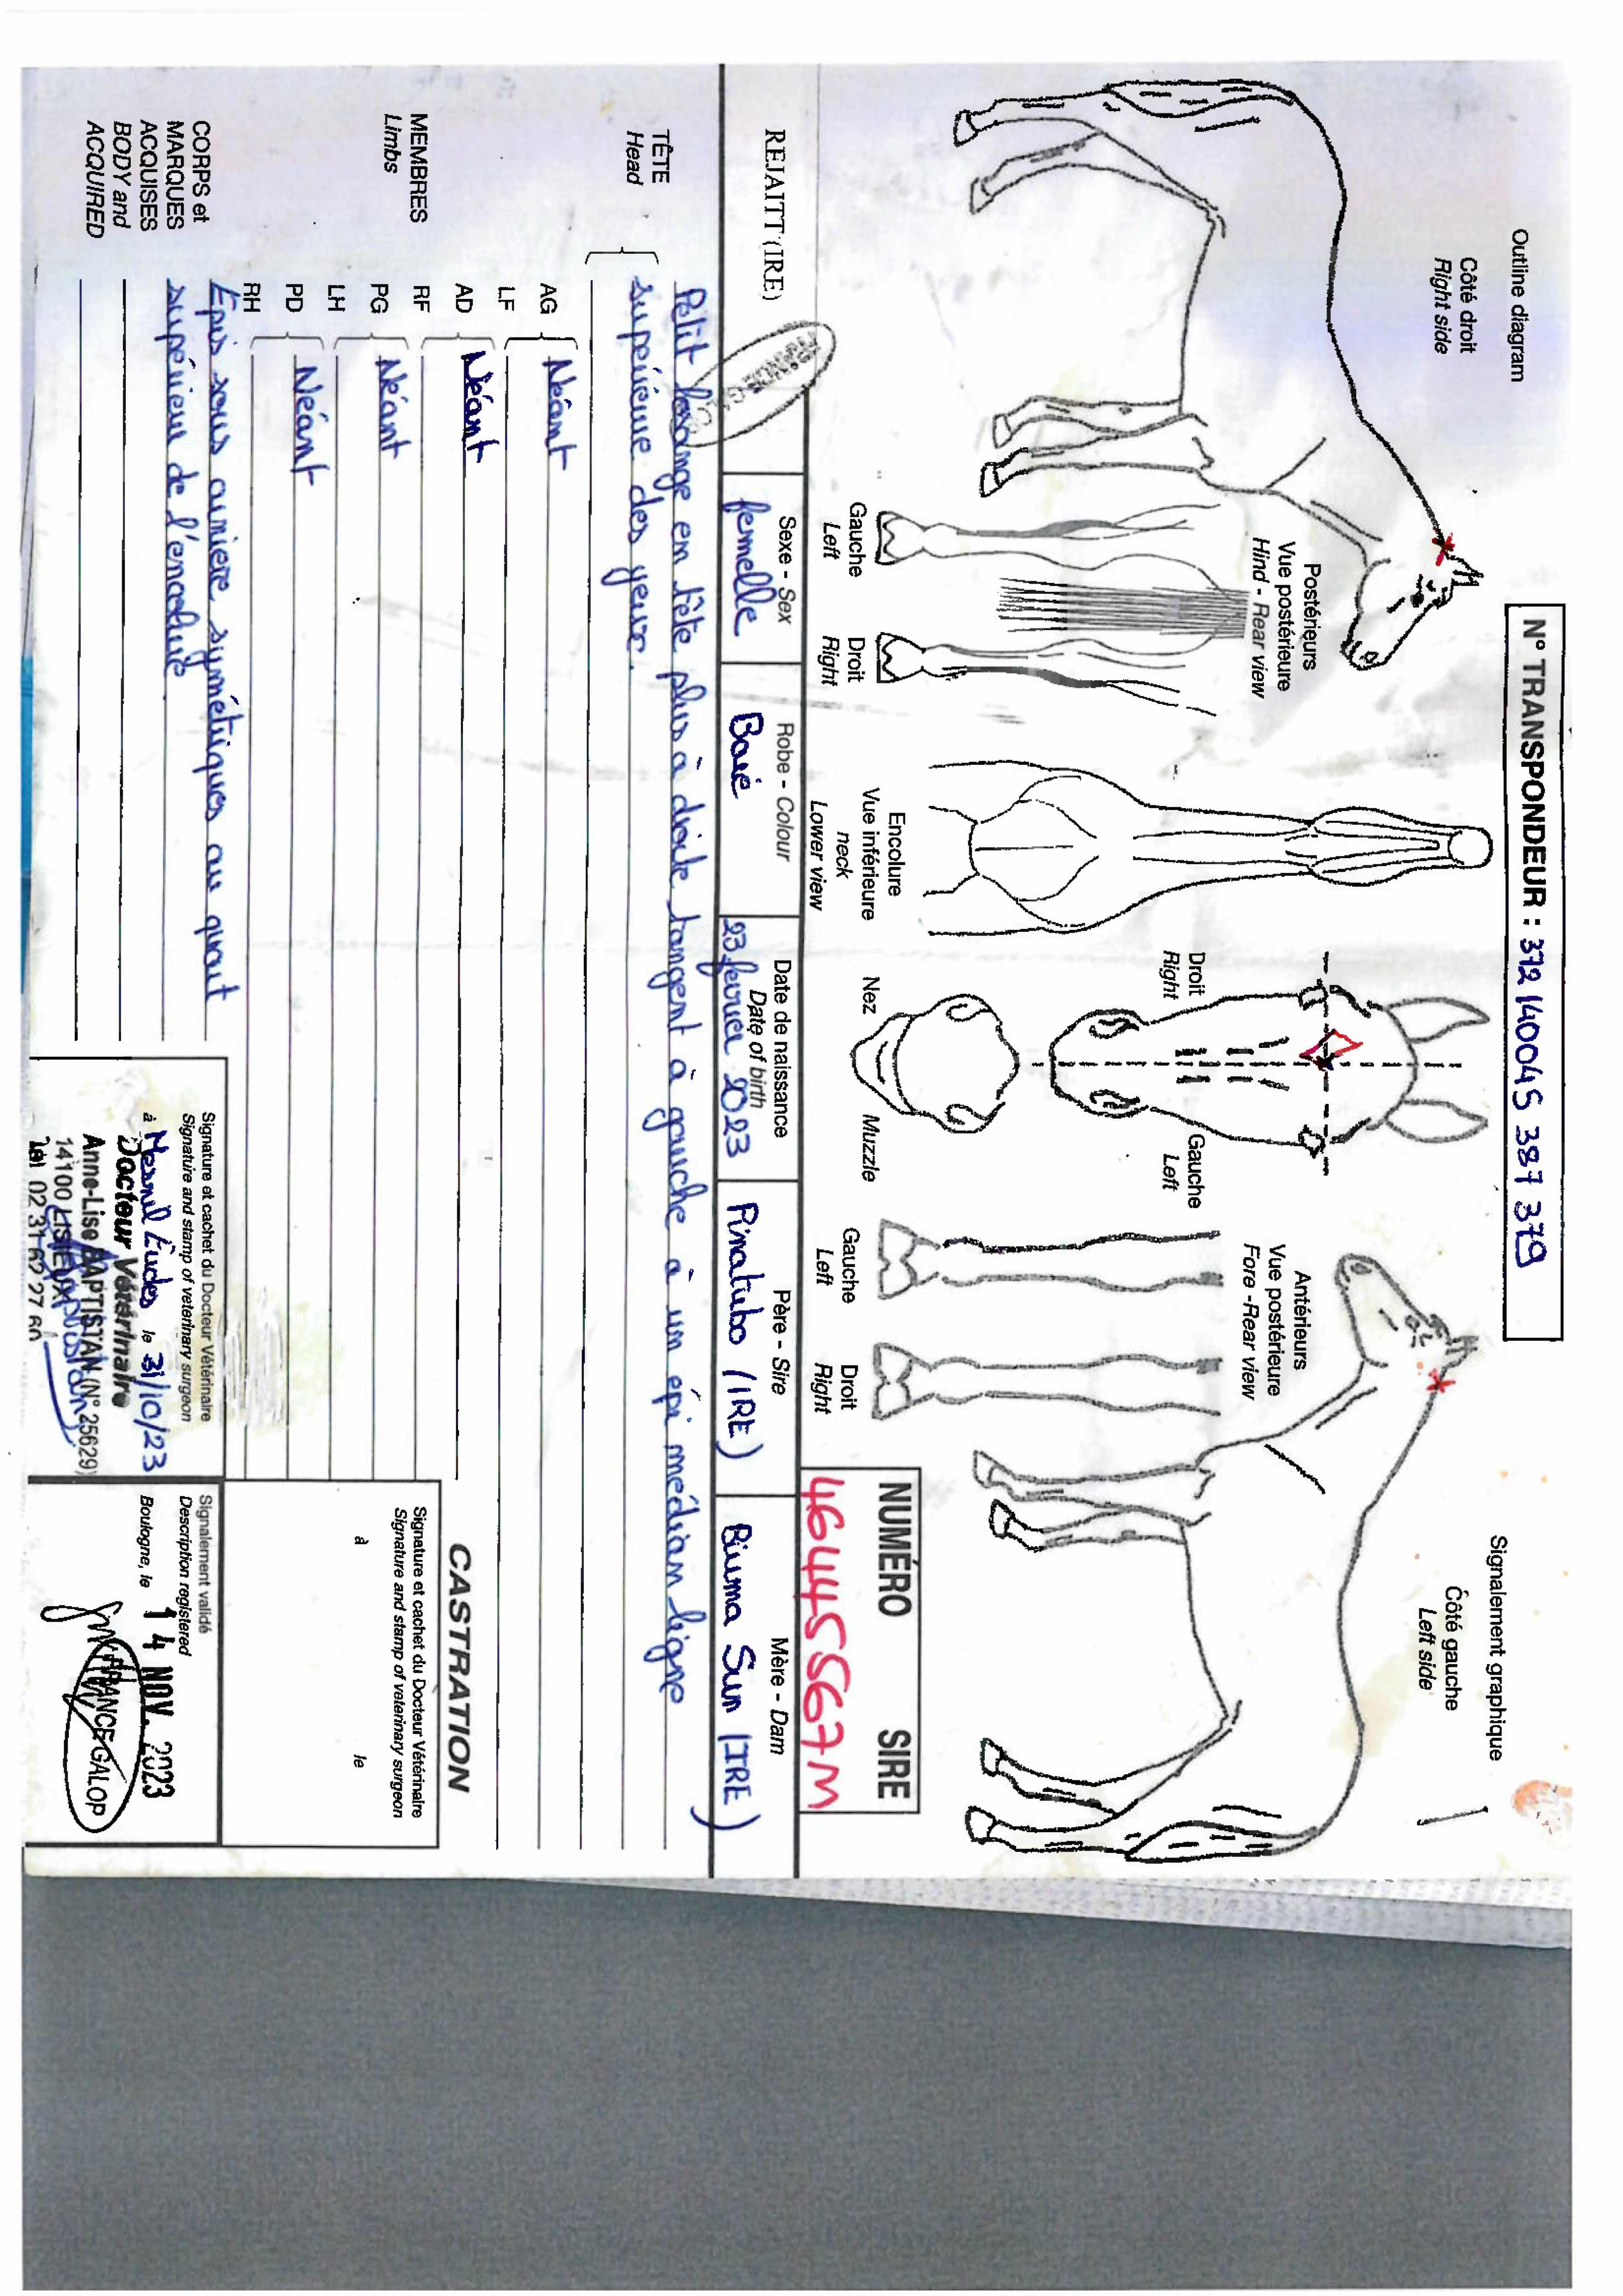 N° TRANSPONDEUR : 372 140045 387 379
Outline diagram
Signalement graphique
Côté droit
Right side
Côté gauche
Left side
Postérieurs
Vue postérieure
Hind - Rear view
Gauche
Left
Droit
Right
Encolure
Vue inférieure
neck
Lower view
Droit
Right
Gauche
Left
Nez
Muzzle
Antérieurs
Vue postérieure
Fore - Rear view
Gauche
Left
Droit
Right
NUMÉRO SIRE
46445567M
REJAITT (IRE)
FRANCE GALOP
Sexe - Sex
femelle
Robe - Colour
Baie
Date de naissance
Date of birth
23 fevrier 2023
Père - Sire
Pinatubo (IRE)
Mère - Dam
Biuma Sun (IRE)
TÊTE
Head
Petit losange en tête plus à droite tangent à gauche à un épi médian ligne
supérieure des yeux.
MEMBRES
Limbs
AG
LF
Néant
AD
RF
Néant
PG
LH
Néant
PD
RH
Néant
CORPS et
MARQUES
ACQUISES
BODY and
ACQUIRED
Epis sous crinière symétriques au quart
supérieur de l'encolure
CASTRATION
Signature et cachet du Docteur Vétérinaire
Signature and stamp of veterinary surgeon
à le
Signature et cachet du Docteur Vétérinaire
Signature and stamp of veterinary surgeon
à Mesnil Eudes le 31/10/23
Docteur Vétérinaire
Anne-Lise BAPTISTAN (N° 25629)
14100 LISIEUX
Tél 02 31 62 27 60
Signalement validé
Description registered
Boulogne, le 14 NOV. 2023
FRANCE GALOP